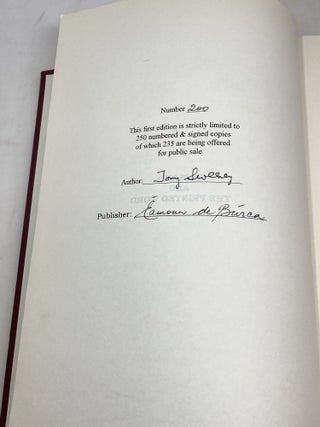 Number 200
This first edition is strictly limited to
250 numbered & signed copies
of which 235 are being offered
for public sale.
Author: Tony Sweeney
Publisher: Éamonn de Búrca